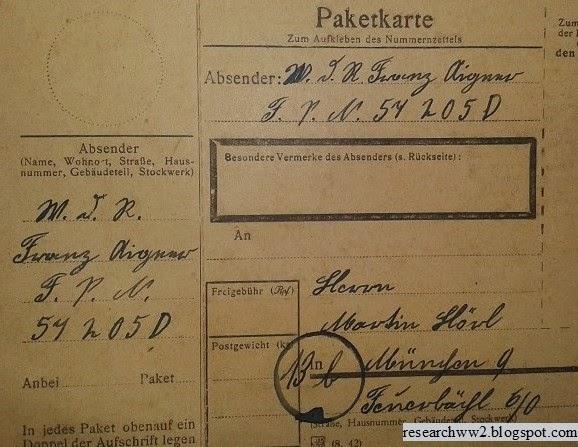 Absender
(Name, Wohnort, Straße, Haus-
nummer, Gebäudeteil, Stockwerk)
W. J. R.
Franz Aigner
F. P. N.
57 205 D
Anbei Paket
In jedes Paket obenauf ein
Doppel der Aufschrift legen
Paketkarte
Zum Aufkleben des Nummernzettels
Absender: W. J. R. Franz Aigner
F. P. N. 57 205 D
Besondere Vermerke des Absenders (s. Rückseite):
An
Freigebühr
Postgewicht (kg
Herrn
Martin Hörl
13b
In München 9
(Straße, Hausnummer, Gebäudeteil, Stockwerk)
(8. 42)
Zu
der
den
researchww2.blogspot.com